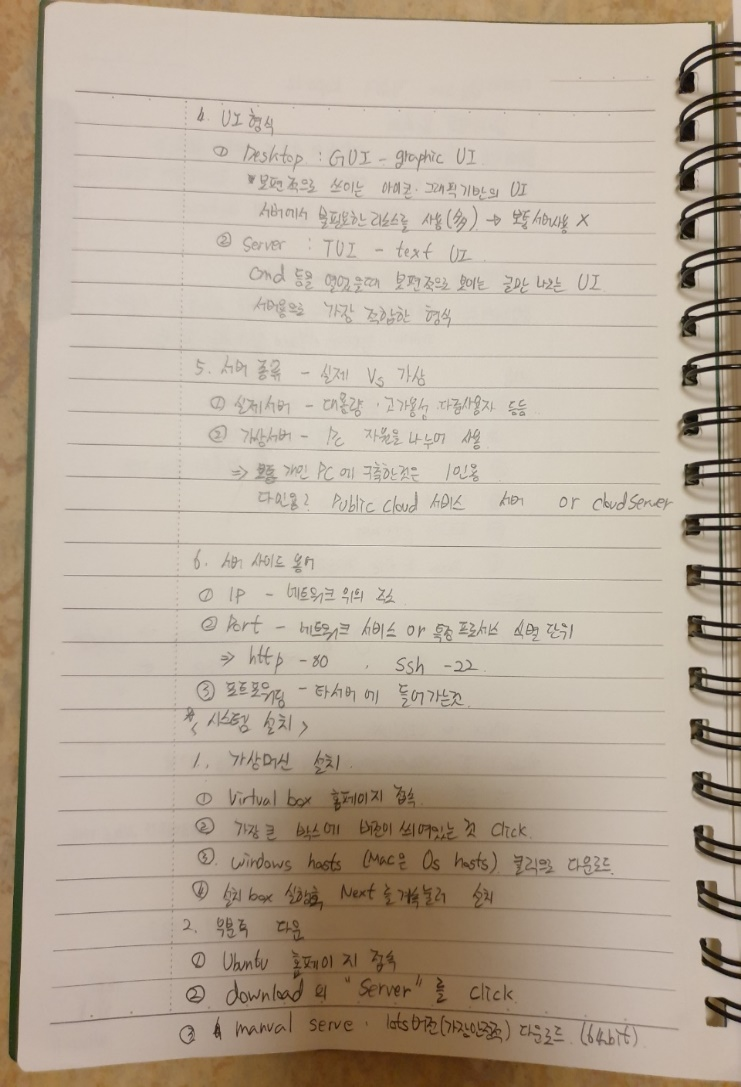 4. UI 형식
① Desktop : GUI - graphic UI
보편적으로 쓰이는 아이콘·그래픽기반의 UI
서버에서 불필요한 리소스를 사용(多) → 보통 서버사용 X
② Server : TUI - text UI
cmd 등을 열었을때 보편적으로 보이는 글만 나오는 UI
서버용으로 가장 적합한 형식
5. 서버 종류 - 실제 Vs 가상
① 실제서버 - 대용량·고가용성·다중사용자 등등
② 가상서버 - PC 자원을 나누어 사용
⇒ 보통 개인 PC에 구축한것은 1인용
다인용? Public cloud 서비스 서버 or cloud server
6. 서버 사이드 용어
① IP - 네트워크 위의 주소
② Port - 네트워크 서비스 or 특정 프로세스 식별 단위
⇒ http -80 , ssh -22
③ 포트포워딩 - 타서버에 들어가는것
* < 시스템 설치 >
1. 가상머신 설치
① Virtual box 홈페이지 접속
② 가장 큰 박스에 버전이 씌여있는 것 click
③ windows hosts (Mac은 Os hosts) 클릭으로 다운로드
④ 설치 box 실행후, Next를 계속눌러 설치
2. 우분투 다운
① Ubuntu 홈페이지 접속
② download 의 "Server" 를 click
③ manual serve · lots버전(가장안정적) 다운로드 (64bit)